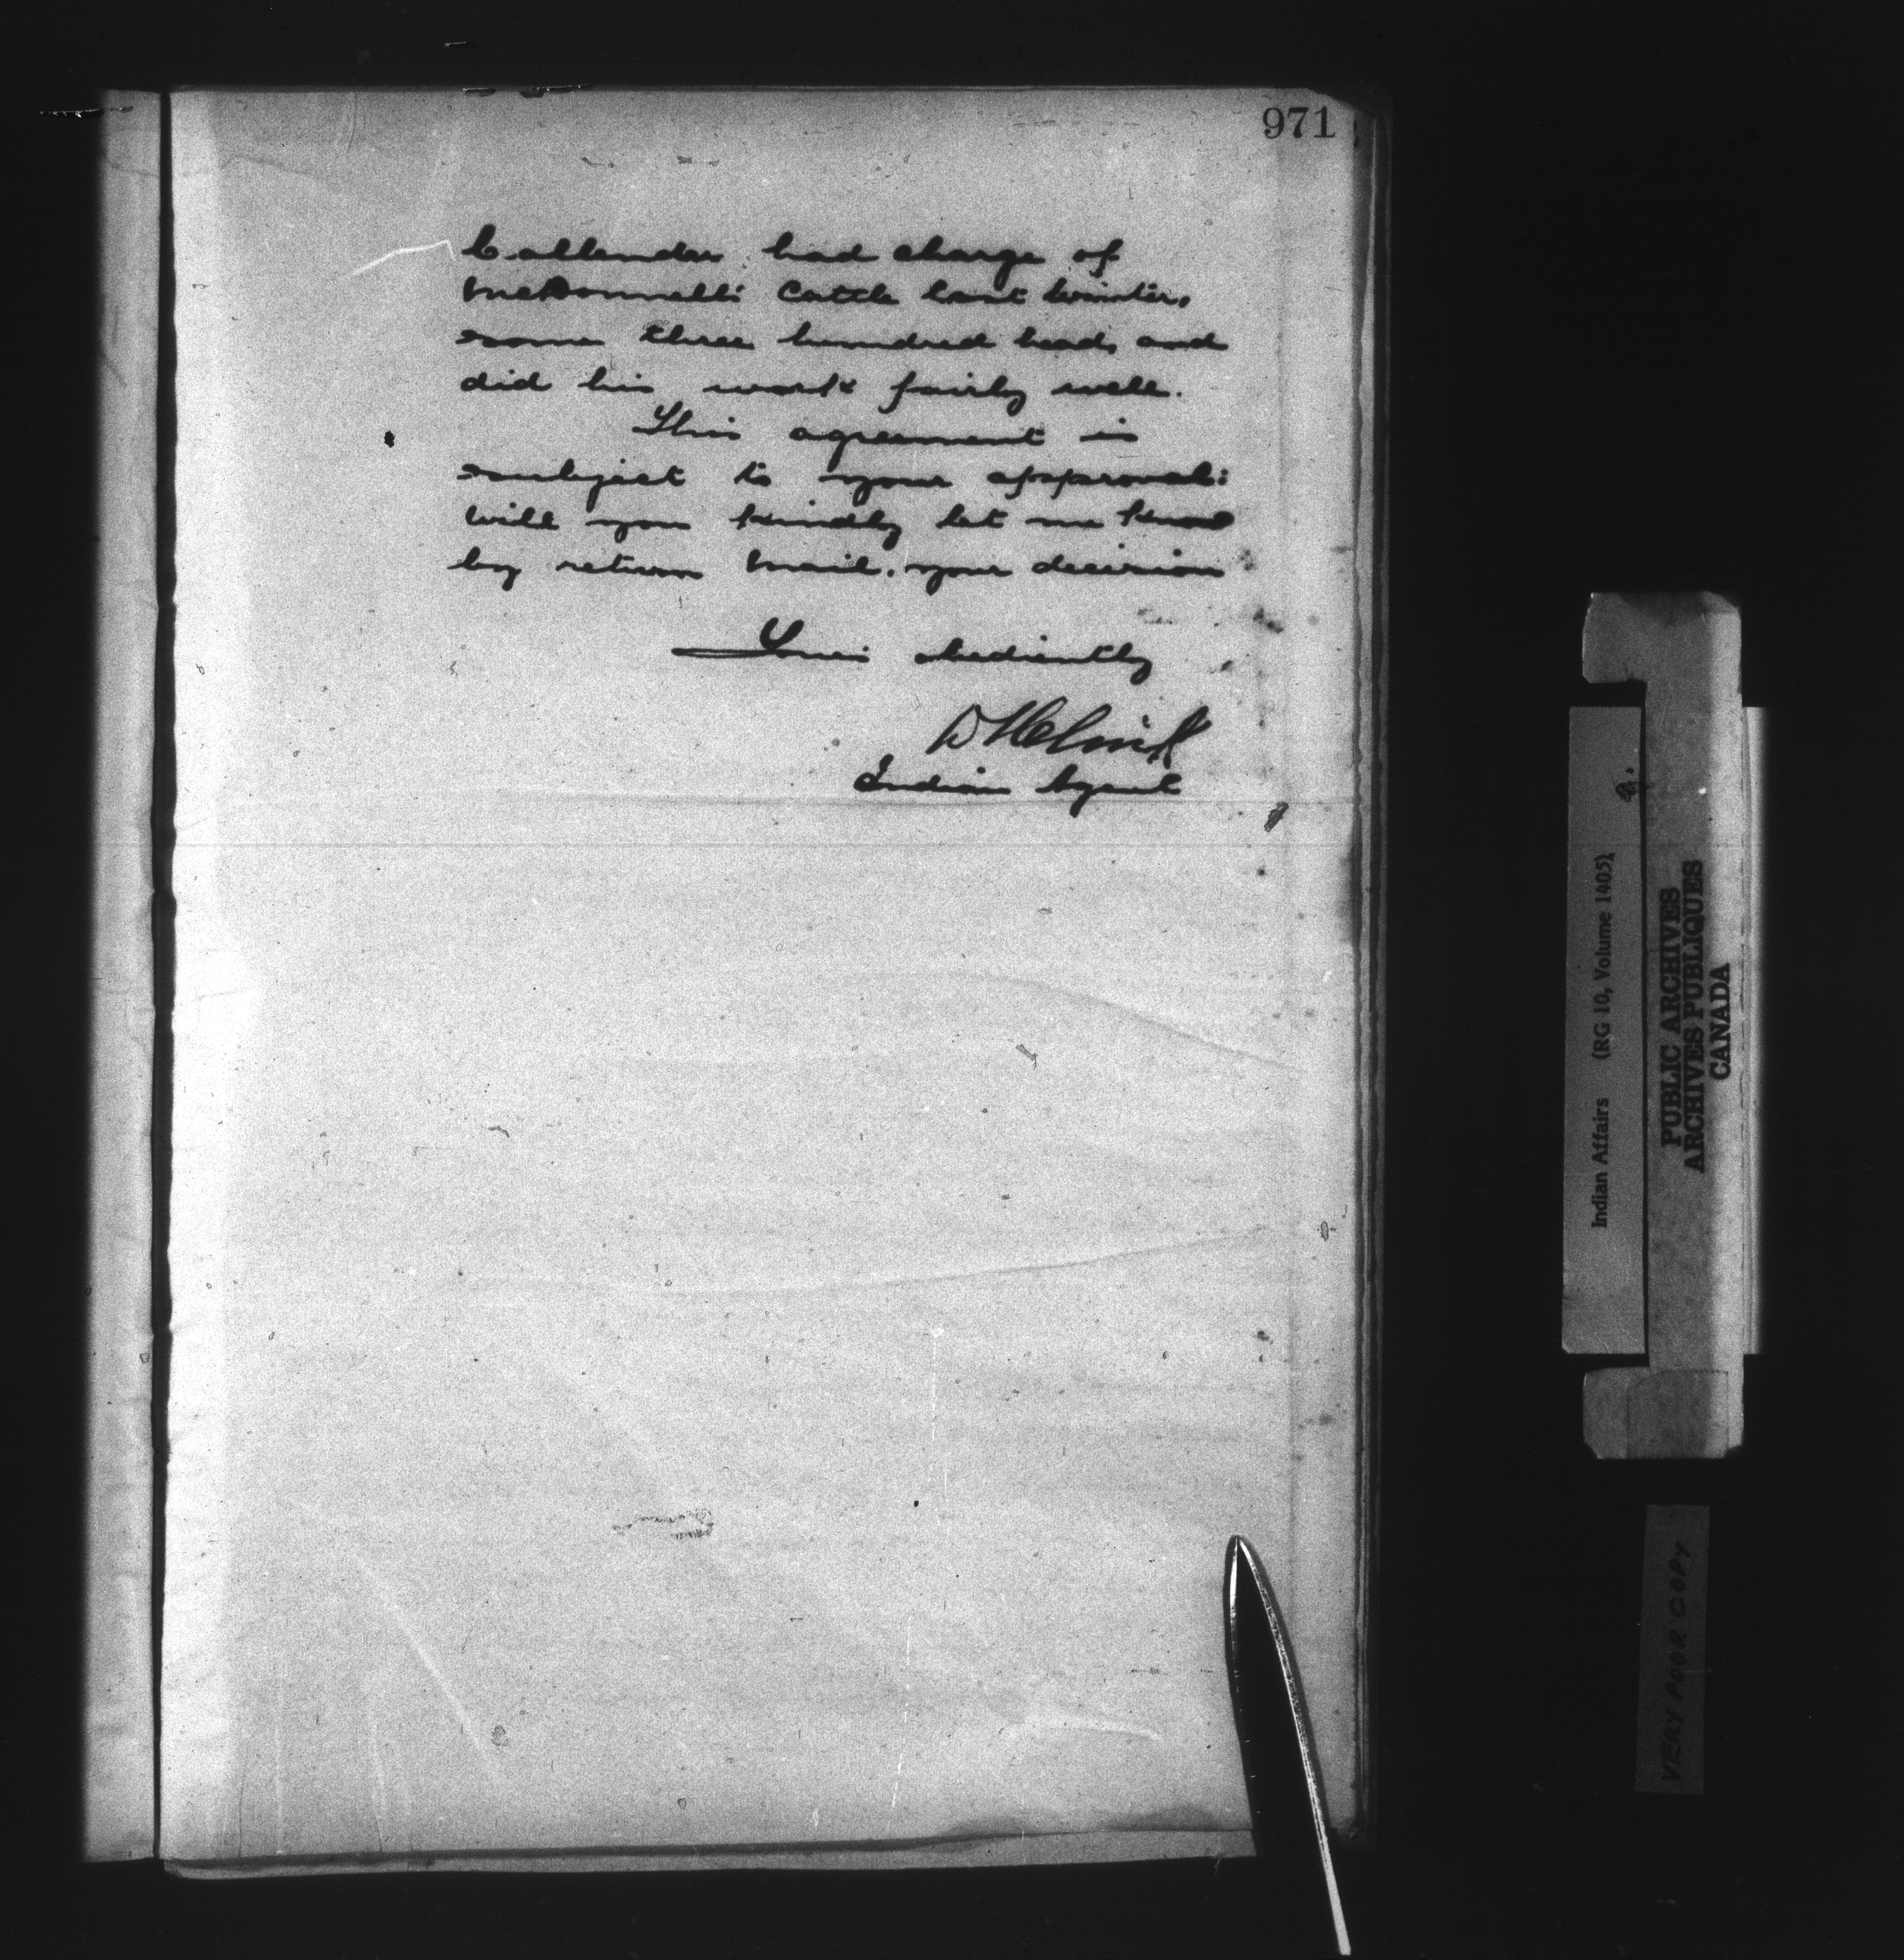 971
Callender had charge of
McDonnell's Cattle last Winter,
some three hundred head, and
did his work fairly well.
This agreement is
subject to your approval:
Will you kindly let me know
by return Mail, your decision
Yours obediently
Indian Agent
Indian Affairs (RG 10, Volume 1405)
PUBLIC ARCHIVES
ARCHIVES PUBLIQUES
CANADA
VERY POOR COPY